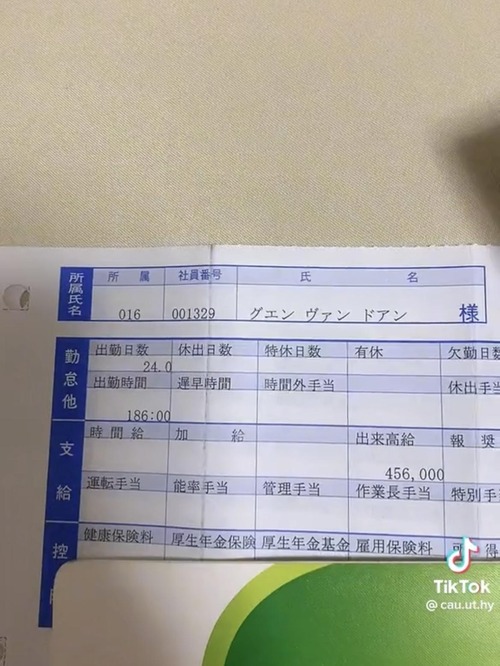 所属氏名
所 属 社員番号 氏 名
016 001329 グエン ヴァン ドアン 様
勤怠他
出勤日数 休出日数 特休日数 有休 欠勤日
24.0
出勤時間 遅早時間 時間外手当 休出手当
186:00
支給
時間給 加 給 出来高給 報 奨
456,000
運転手当 能率手当 管理手当 作業長手当 特別手
控
健康保険料 厚生年金保険 厚生年金基金 雇用保険料 得
TikTok
@ cau.ut.hy